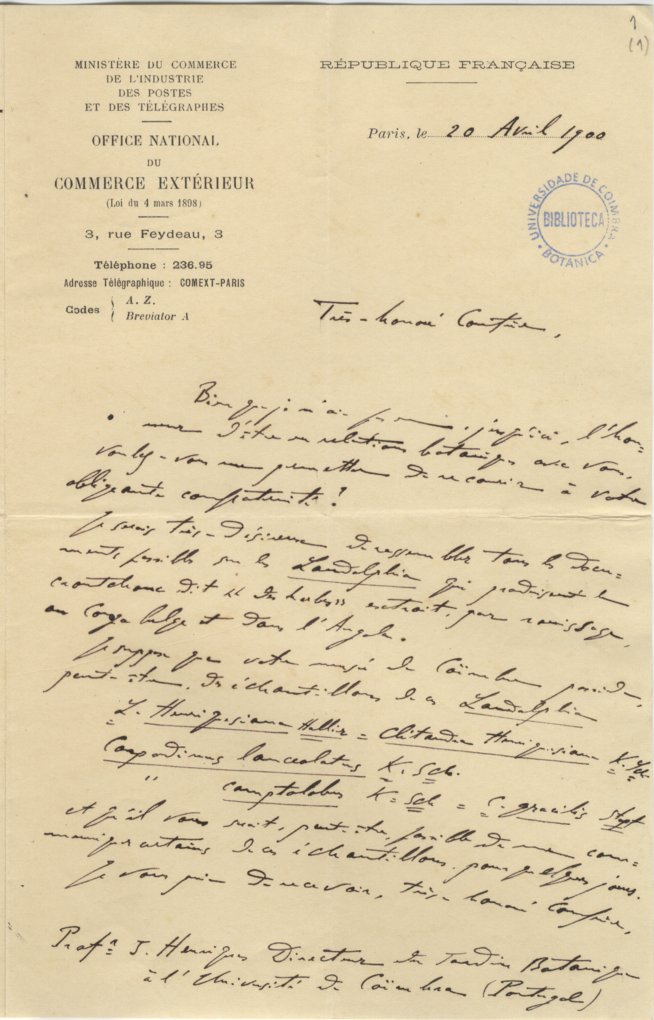 1
(1)
MINISTÈRE DU COMMERCE
DE L'INDUSTRIE
DES POSTES
ET DES TÉLÉGRAPHES
OFFICE NATIONAL
DU
COMMERCE EXTÉRIEUR
(Loi du 4 mars 1898)
3, rue Feydeau, 3
Téléphone : 236.95
Adresse Télégraphique : COMEXT-PARIS
Codes
A. Z.
Breviator A
RÉPUBLIQUE FRANÇAISE
Paris, le 20 Avril 1900
UNIVERSIDADE DE COIMBRA
BIBLIOTECA
BOTANICA
Très-honoré Confrère,
Bien que je n'ai pas eu, jusqu'ici, l'hon-
neur d'être en relations botaniques avec vous,
voulez-vous me permettre de recourir à votre
obligeante confraternité ?
Je serais très-désireux de rassembler tous les docu-
ments possibles sur les Landolphia qui produisent le
caoutchouc dit "des herbes" extrait, par rouissage,
au Congo belge et dans l'Angola.
Je suppose que votre musée de Coïmbre possède,
peut-être, des échantillons de ces Landolphia
L. Henriquesiana Hallier = Clitandra Henriquesiana K. Sch.
Carpodinus lanceolatus K. Sch.
" K. Sch = C. gracilis Stapf
et qu'il vous serait, peut-être, possible de me com-
muniquer certains de ces échantillons, pour quelques jours.
Je vous prie de recevoir, très honoré Confrère,
Profr. J. Henriques Directeur du Jardin Botanique
à l'Université de Coïmbra (Portugal)